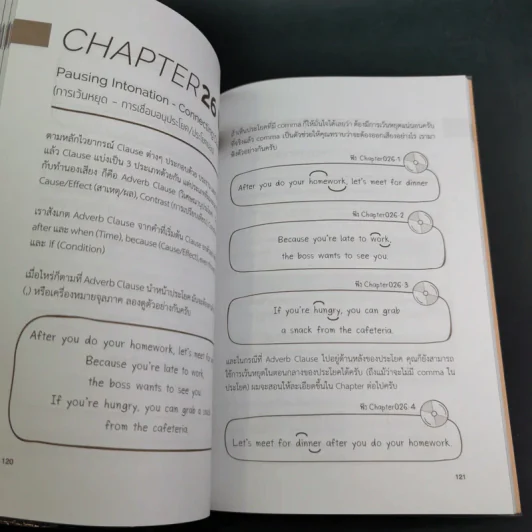 CHAPTER 26
Pausing Intonation - Connecting
(การเว้นหยุด - การเชื่อมอนุประโยค/ประโยค
ตามหลักไวยากรณ์ Clause ต่างๆ ประกอบด้วย
แล้ว Clause แบ่งเป็น 3 ประเภทด้วยกัน
กับทำนองเสียง ก็คือ Adverb Clause
Cause/Effect (สาเหตุ/ผล), Contrast
เราสังเกต Adverb Clause จากคำที่เริ่มต้น Clause
after และ when (Time), because (Cause/Effect),
และ If (Condition)
เมื่อไหร่ก็ตามที่ Adverb Clause นำหน้าประโยค
(,) หรือเครื่องหมายจุลภาค ลองดูตัวอย่างกันครับ
After you do your homework, let's meet
Because you're late to work,
the boss wants to see you
If you're hungry, you can grab a snack
from the cafeteria.
120
ถ้าเห็นประโยคที่มี comma ก็ให้มั่นใจได้เลยว่า ต้องมีการเว้นหยุดแน่นอนครับ
comma เป็นตัวช่วยให้คุณทราบว่าจะต้องออกเสียงอย่างไร เรามา
ฟังตัวอย่างกันครับ
ฟัง Chapter026-1
After you do your homework, let's meet for dinner
ฟัง Chapter026-2
Because you're late to work,
the boss wants to see you.
ฟัง Chapter026-3
If you're hungry, you can grab
a snack from the cafeteria.
และในกรณีที่ Adverb Clause ไปอยู่ด้านหลังของประโยค คุณก็ยังสามารถ
ใช้การเว้นหยุดในตอนกลางของประโยคได้ครับ (ถึงแม้ว่าจะไม่มี comma ใน
ประโยค) ผมจะสอนให้ละเอียดขึ้นใน Chapter ต่อไปครับ
ฟัง Chapter026-4
Let's meet for dinner after you do your homework.
121